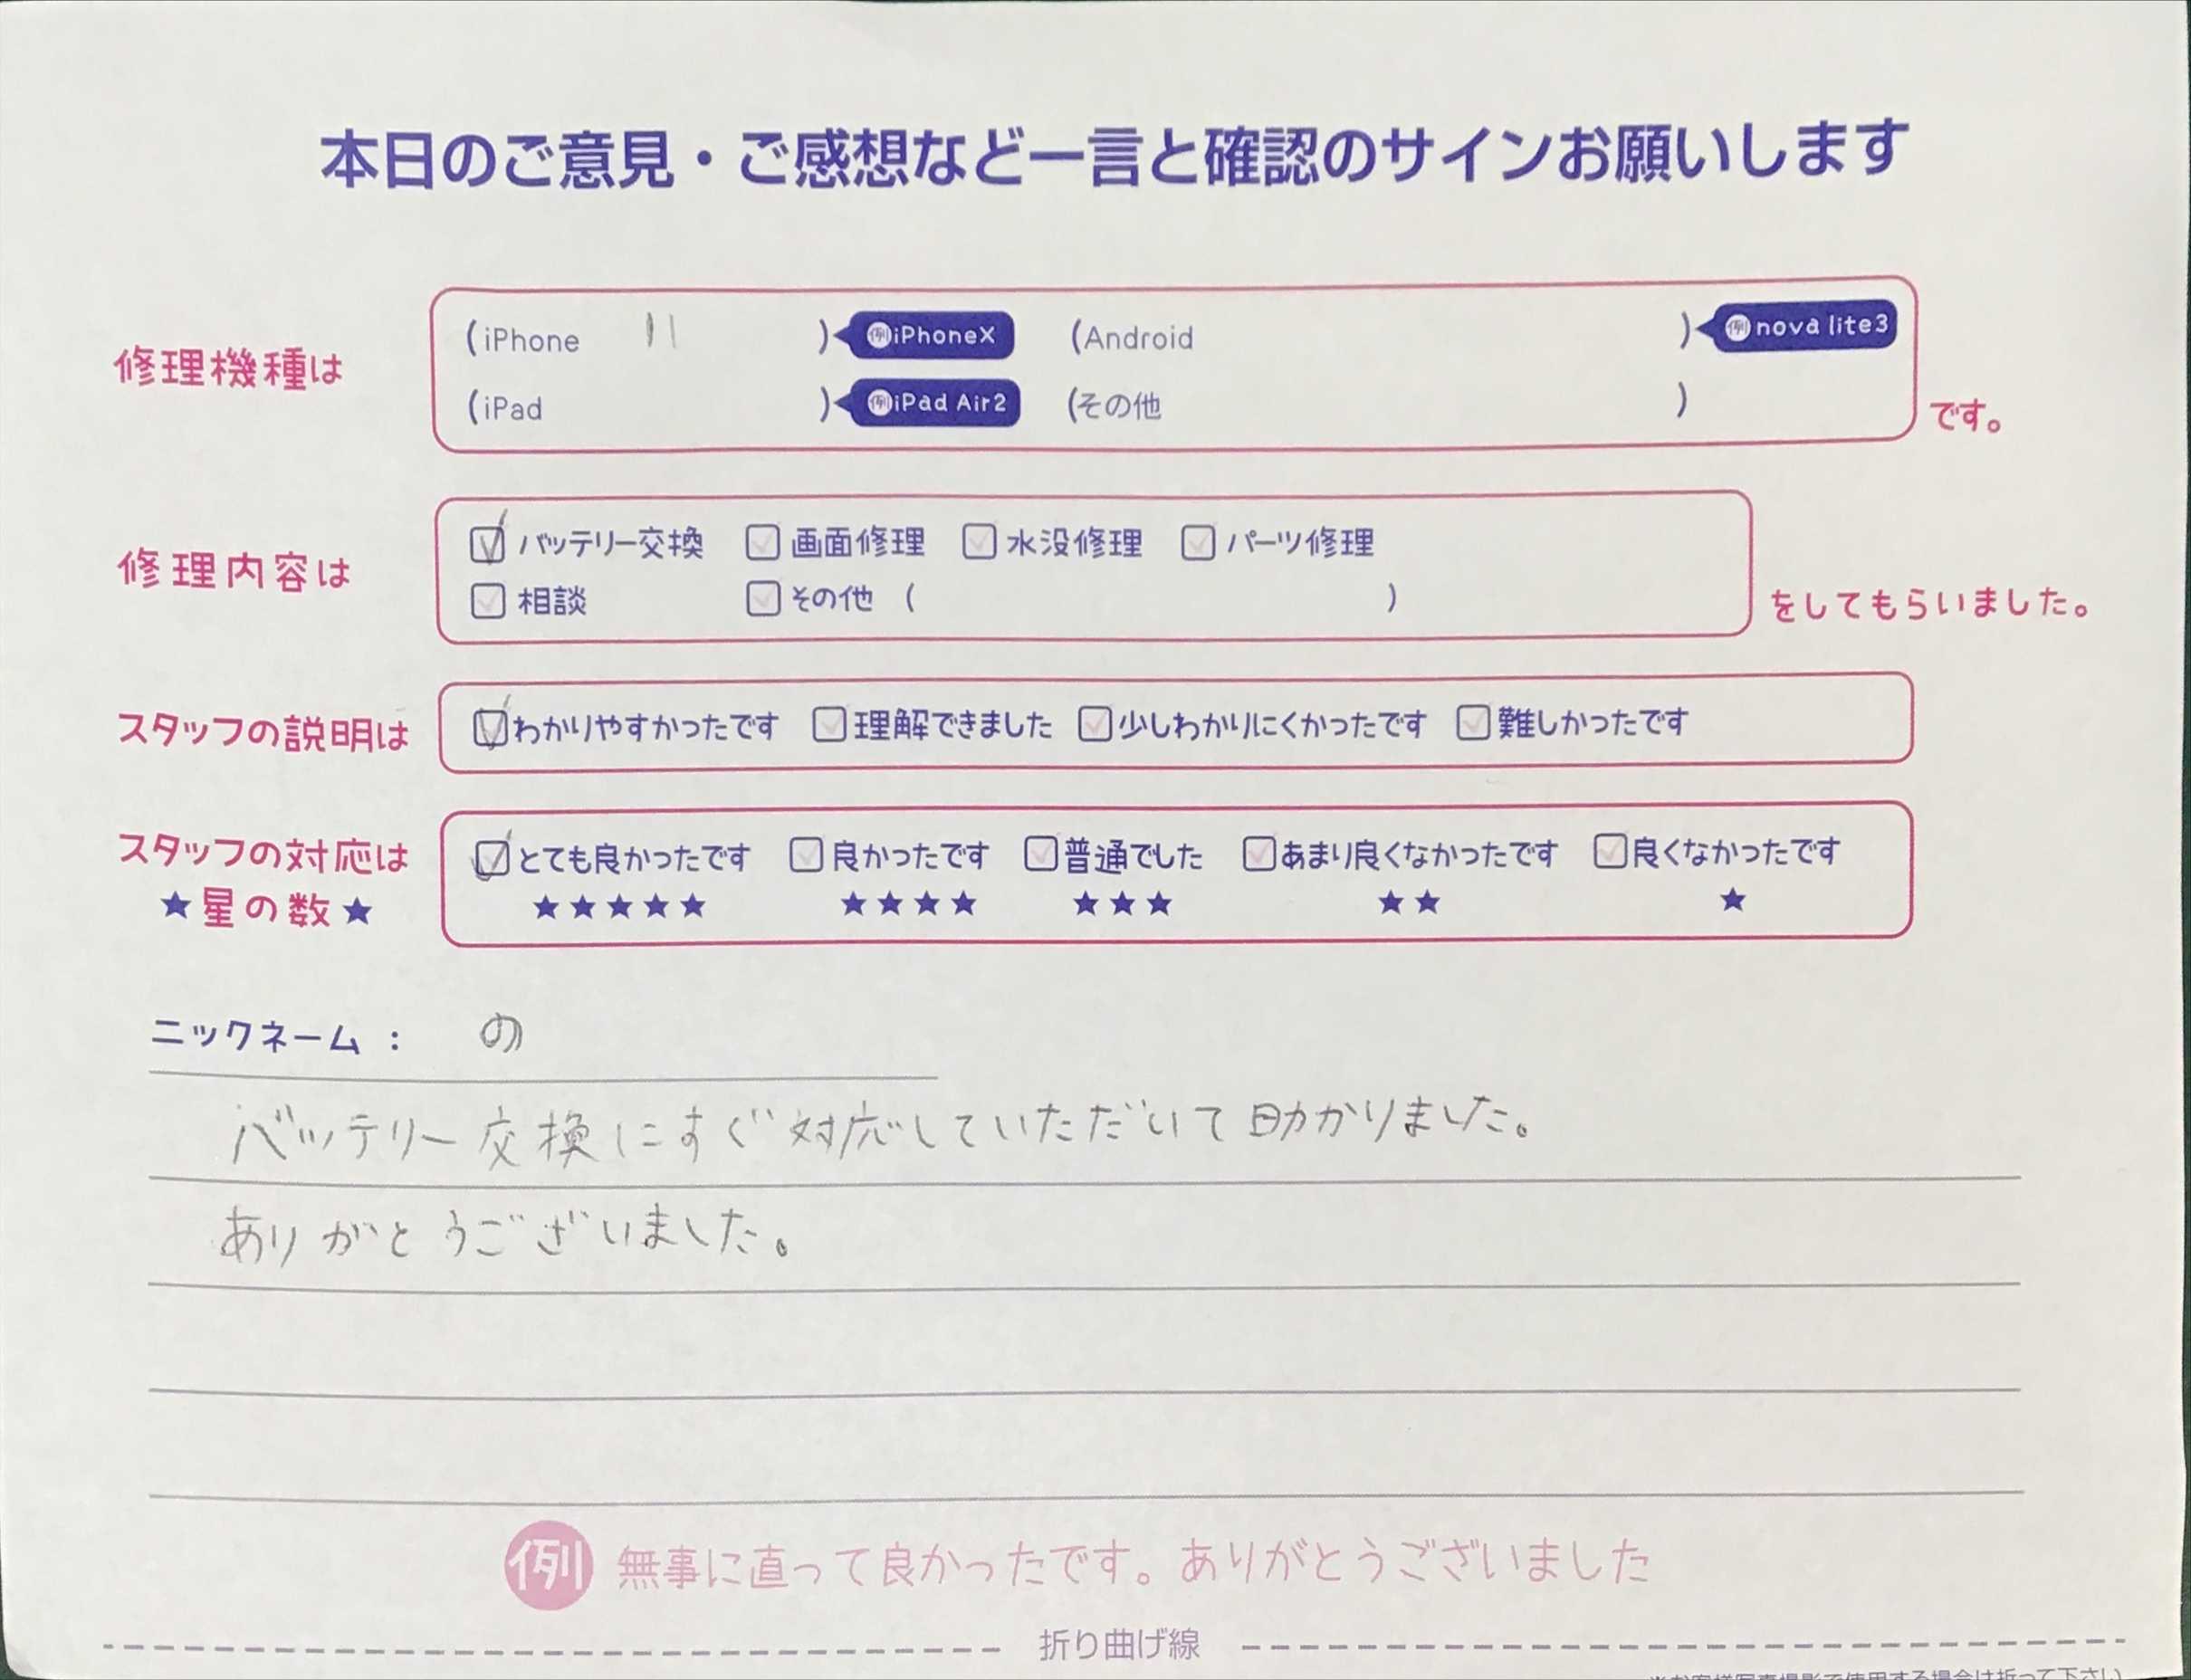 本日のご意見・ご感想など一言と確認のサインお願いします
修理機種は (iPhone 11 ) 例iPhoneX (Android ) 例nova lite3
(iPad ) 例iPad Air2 (その他 ) です。
修理内容は バッテリー交換 画面修理 水没修理 パーツ修理
相談 その他 ( ) をしてもらいました。
スタッフの説明は わかりやすかったです 理解できました 少しわかりにくかったです 難しかったです
スタッフの対応は とても良かったです 良かったです 普通でした あまり良くなかったです 良くなかったです
★星の数★ ★★★★★ ★★★★ ★★★ ★★ ★
ニックネーム : の
バッテリー交換にすぐ対応していただいて助かりました。
ありがとうございました。
例 無事に直って良かったです。ありがとうございました
折り曲げ線
※お客様写真撮影で使用する場合は折って下さい